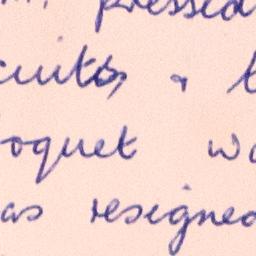 pressed
cuits, &
oquet wa
as resigned